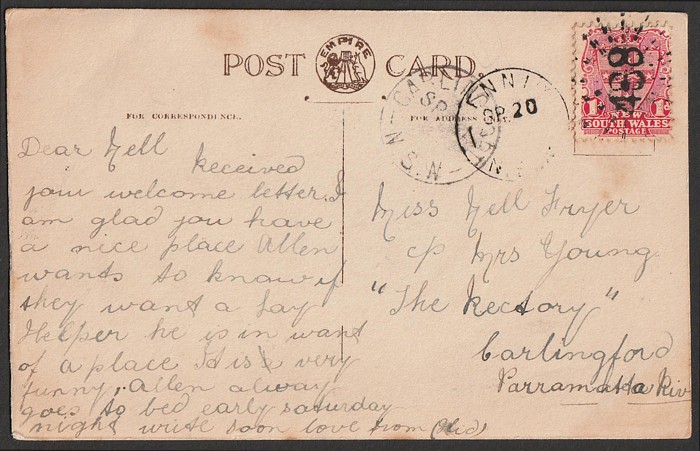 POST CARD
EMPIRE
FOR CORRESPONDENCE.
FOR ADDRESS ONLY.
SP. 20
N.S.W
458
1d 1d
NEW
SOUTH WALES
POSTAGE
Dear Nell
Received
your welcome letter. I
am glad you have
a nice place Allen
wants to know if
they want a Lay
Helper he is in want
of a place It is a very
funny, Allen alway
goes to bed early saturday
night write soon love from
Miss Nell Fryer
c/o Mrs Young
"The Rectory"
Carlingford
Parramatta Riv